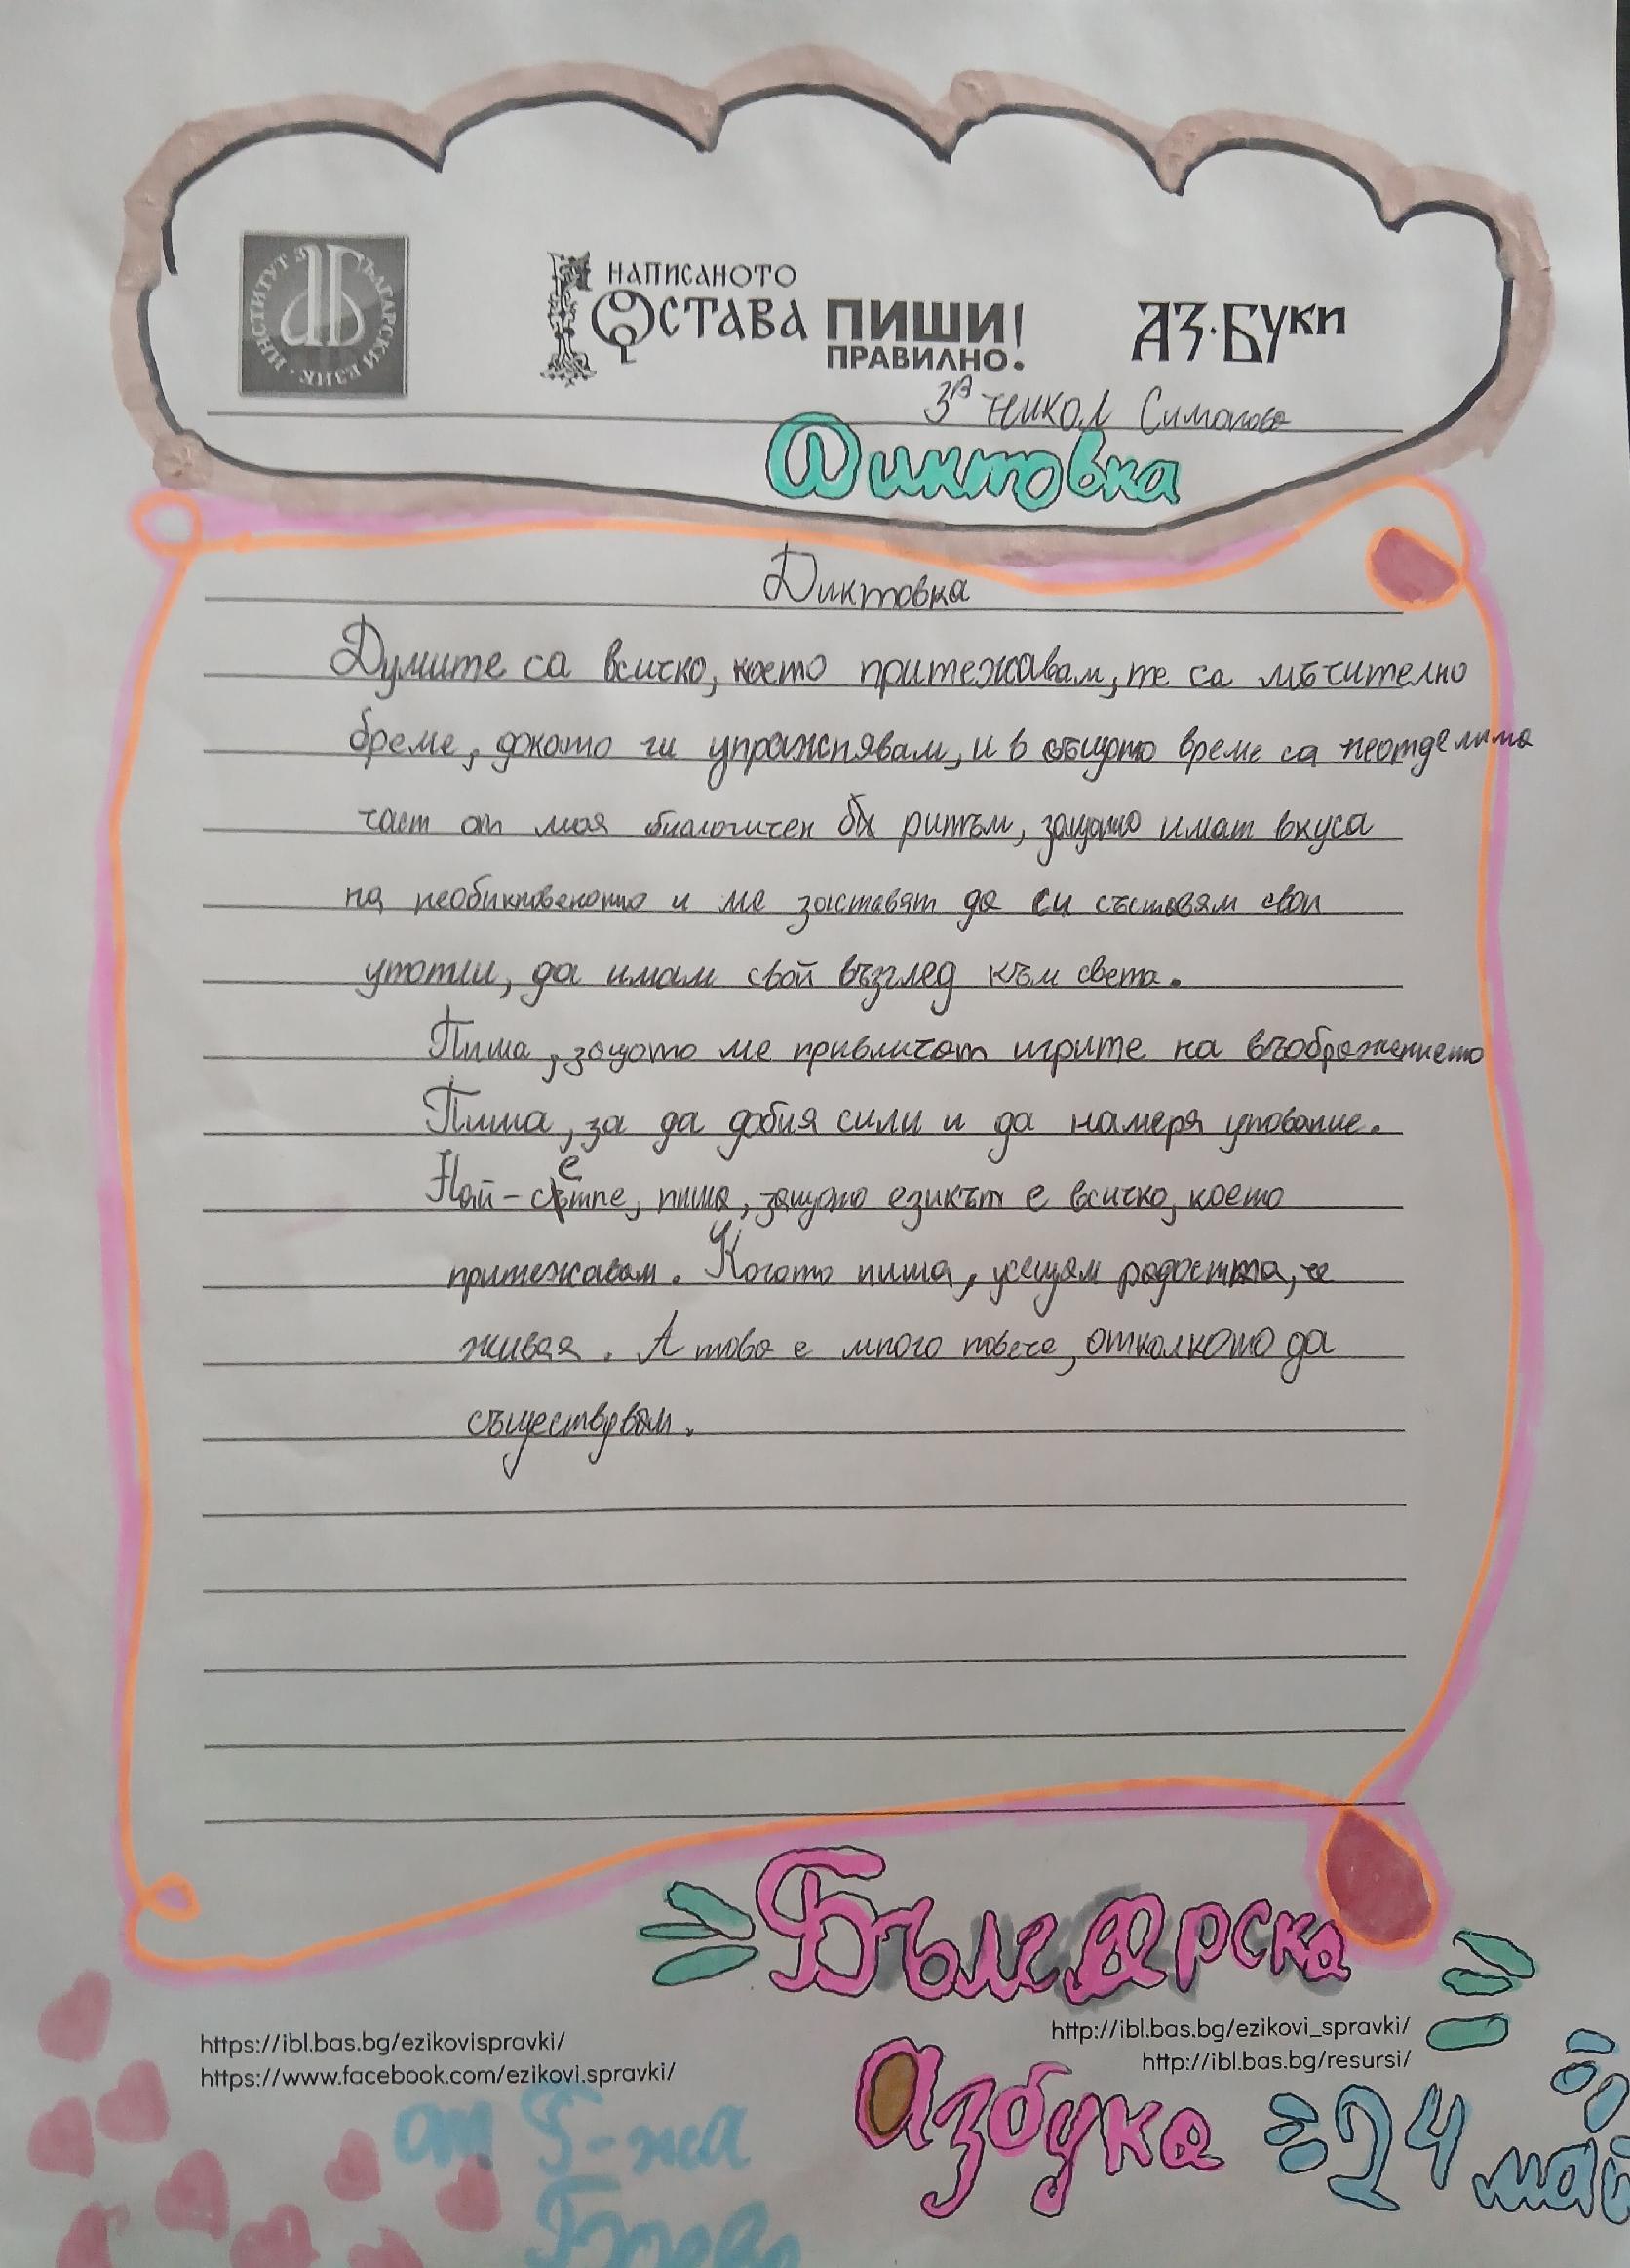 ИНСТИТУТ ЗА БЪЛГАРСКИ ЕЗИК
НАПИСАНОТО
ОСТАВА ПИШИ!
ПРАВИЛНО.
АЗ·БУКИ
3В Никол Симонова
Диктовка
Диктовка
Думите са всичко, което притежавам, те са мъчително
бреме, докато ги упражнявам, и в същото време са неотделима
част от моя биологичен ритъм, защото имат вкуса
на необикновеното и ме заставят да си съставям свои
утопии, да имам свой възглед към света.
Пиша, защото ме привличат игрите на въображението
Пиша, за да добия сили и да намеря упование.
Най-сетне, пиша, защото езикът е всичко, което
притежавам. Когато пиша, усещам радостта, че
живея. А това е много повече, отколкото да
съществувам.
Българска
https://ibl.bas.bg/ezikovispravki/
http://ibl.bas.bg/ezikovi_spravki/
https://www.facebook.com/ezikovi.spravki/
http://ibl.bas.bg/resursi/
Азбука 24 май
от Г-жа